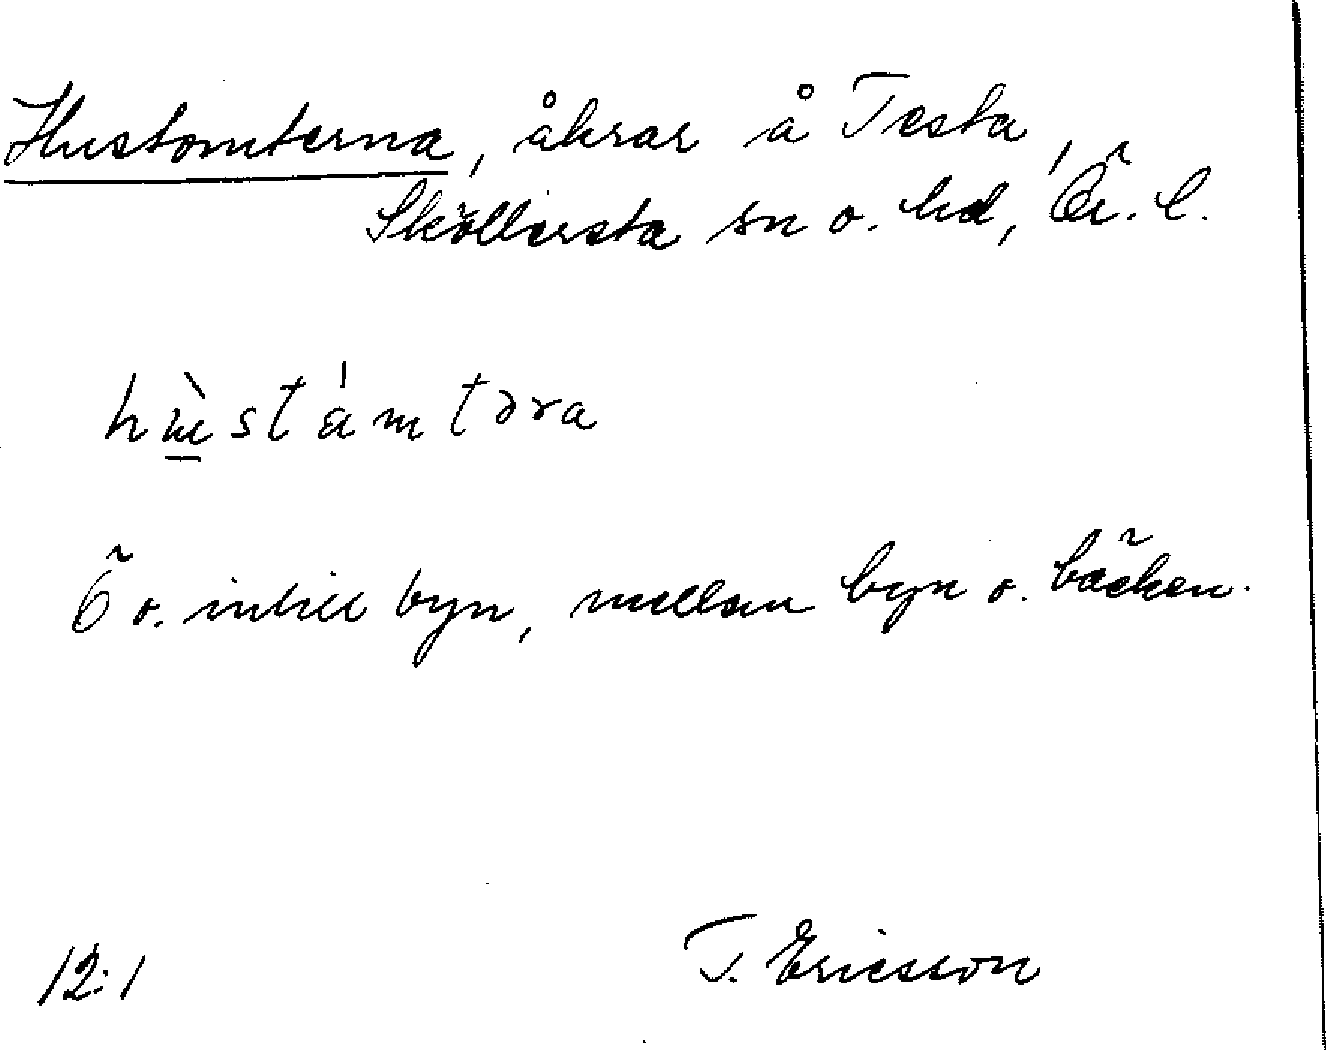 Hustomterna, åkrar å Testa,
Sköllersta sn o. hd, Ör. l.
hùstámtəra
Ö o. intill byn, mellan byn o. bäcken.
12:1
T. Ericsson